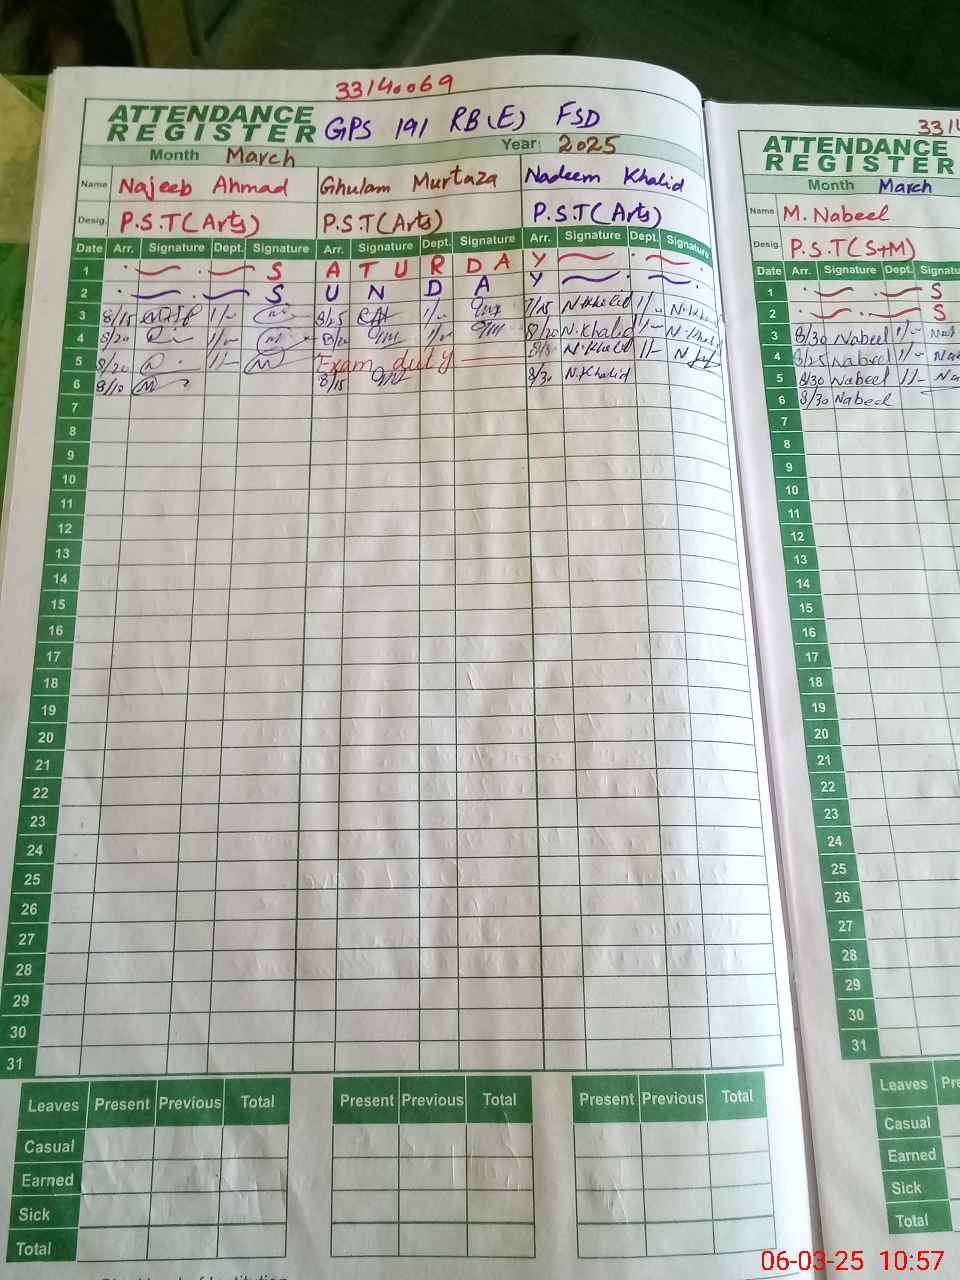 33140069
ATTENDANCE
REGISTER GPS 191 RB(E) FSD
Month March Year: 2025
Name Najeeb Ahmad Ghulam Murtaza Nadeem Khalid
Desig. P.S.T(Arts) P.S.T(Arts) P.S.T(Arts)
Date Arr. Signature Dept. Signature Arr. Signature Dept. Signature Arr. Signature Dept. Signature
1 S A T U R D A Y
2 S U N D A Y
3 8/15 1/- 8/25 1/- 7/25 N.Khalid 1/- N.Khalid
4 8/20 1/- 8/20 1/- 8/20 N.Khalid 1/- N.Khalid
5 8/20 1/- Exam duty 8/30 N.Khalid 1/-
6 8/10 8/15 8/30 N.Khalid
7
8
9
10
11
12
13
14
15
16
17
18
19
20
21
22
23
24
25
26
27
28
29
30
31
Leaves Present Previous Total Present Previous Total Present Previous Total
Casual
Earned
Sick
Total
3314
ATTENDANCE
REGISTER
Month March
Name M. Nabeel
Desig. P.S.T(S+M)
Date Arr. Signature Dept. Signatu
1 S
2 S
3 8/30 Nabeel 1/-
4 8/25 Nabeel 1/-
5 8/30 Nabeel 1/-
6 8/30 Nabeel
7
8
9
10
11
12
13
14
15
16
17
18
19
20
21
22
23
24
25
26
27
28
29
30
31
Leaves Pre
Casual
Earned
Sick
Total
06-03-25 10:57